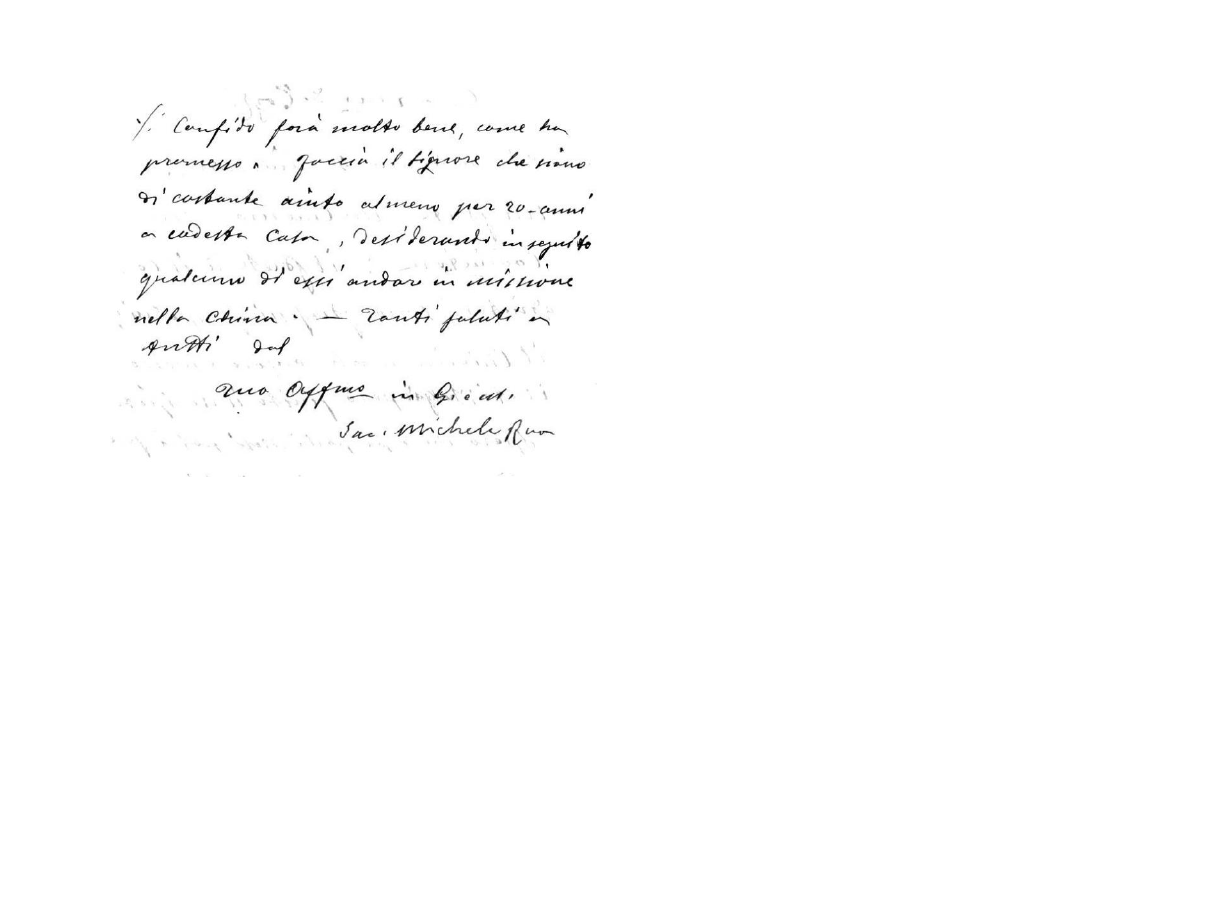 ·/. Confido farà molto bene, come ha
promesso. Faccia il Signore che siano
di costante aiuto almeno per 20 anni
a codesta Casa, desiderando in seguito
qualcuno di essi andar in missione
nella China. — Tanti saluti a
tutti dal
Tuo Affmo in G. e M.
Sac. Michele Rua